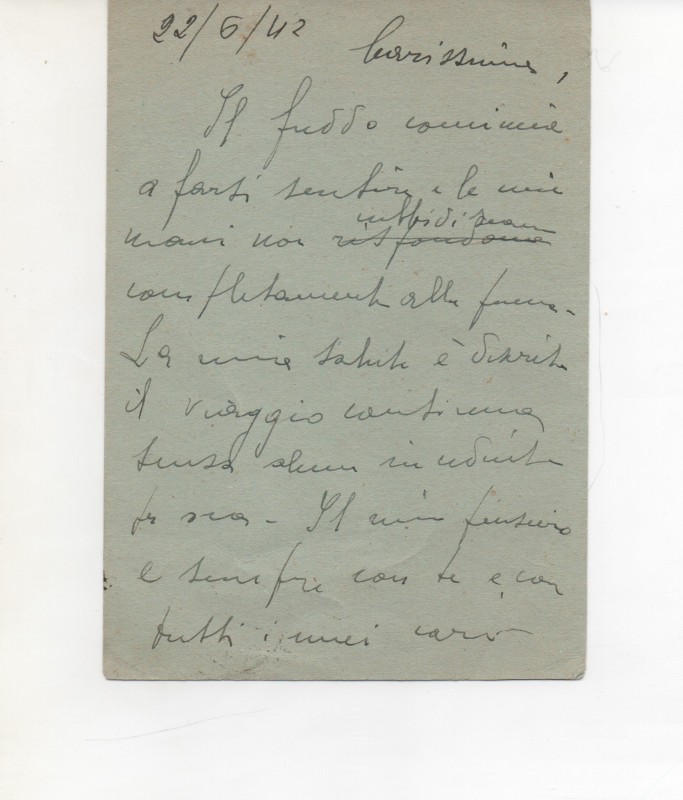 22/6/42
Carissima,
Il freddo comincia
a farsi sentire e le mie
ubbidiscono
mani non rispondono
completamente alla penna.
La mia salute è discreta
il viaggio continua
senza alcun incidente
Il mio pensiero
è sempre con te e con
tutti i miei cari